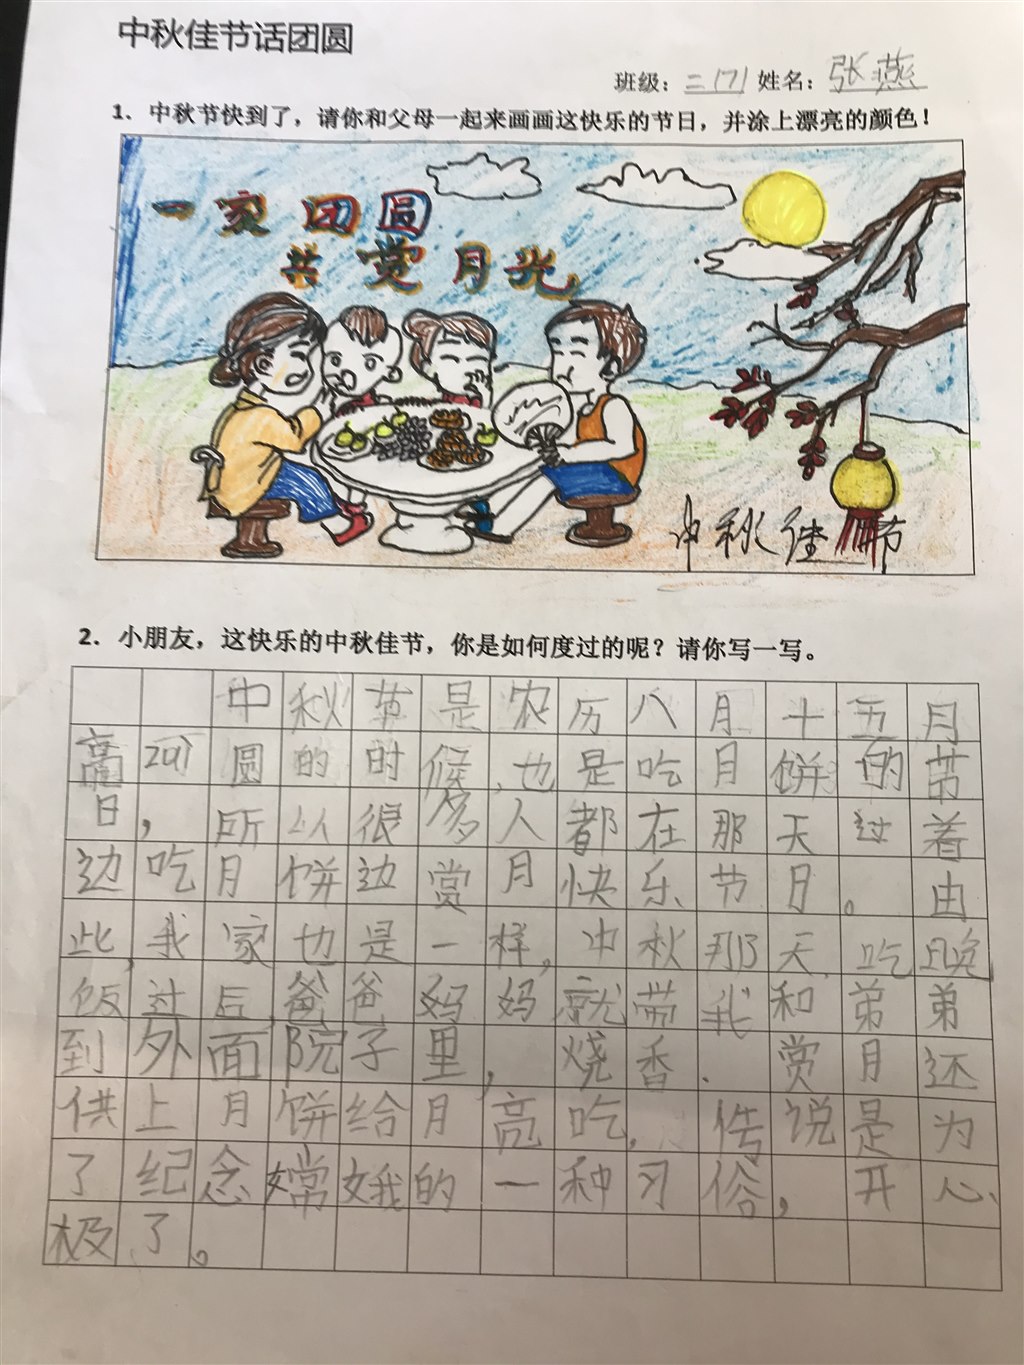 中秋佳节话团圆
班级：二（7）姓名：张燕
1. 中秋节快到了，请你和父母一起来画画这快乐的节日，并涂上漂亮的颜色！
一家团圆
共赏月光
中秋佳节
2. 小朋友，这快乐的中秋佳节，你是如何度过的呢？请你写一写。
中秋节是农历八月十五月
亮圆的时候，也是吃月饼的节
日，所以很多人都在那天过着
边吃月饼边赏月快乐节日。由
此，我家也是一样，中秋那天，吃晚
饭过后，爸爸妈妈就带我和弟弟
到外面院子里，烧香．赏月还
供上月饼给月亮吃，传说是为
了纪念嫦娥的一种习俗，开心
极了。